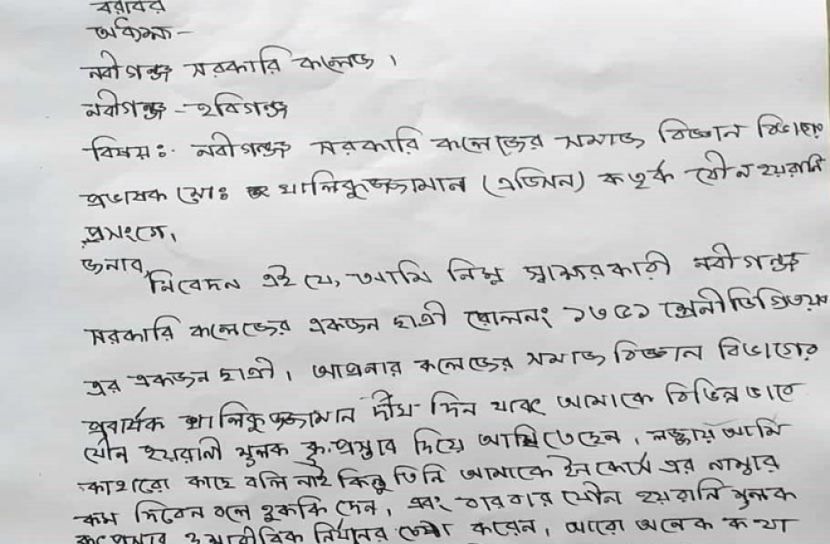 বরাবর
অধ্যক্ষ-
নবীগঞ্জ সরকারি কলেজ।
নবীগঞ্জ - হবিগঞ্জ
বিষয়ঃ নবীগঞ্জ সরকারি কলেজের সমাজ বিজ্ঞান বিভাগের
প্রভাষক মোঃ খালিকুজ্জামান (এডিসন) কতৃর্ক যৌন হয়রানি
প্রসংগে,
জনাব,
নিবেদন এই যে, আমি নিম্ন স্বাক্ষরকারী নবীগঞ্জ
সরকারি কলেজের একজন ছাত্রী রোলনং ১৭৫১ শ্রেনী ডিগ্রি
এর একজন ছাত্রী। আপনার কলেজের সমাজ বিজ্ঞান বিভাগের
খালিকুজ্জামান দীঘ দিন যাবৎ আমাকে বিভিন্ন ভাবে
যৌন হয়রানী মূলক কু-প্রস্তাব দিয়ে আসিতেছেন। লজ্জায় আমি
কাহারো কাছে বলি নাই কিন্তু তিনি আমাকে ইনকোর্স এর নাম্বার
কম দিবেন বলে হুমকি দেন, এবং বারবার যৌন হয়রানি মূলক
করেন, আরো অনেক কথা